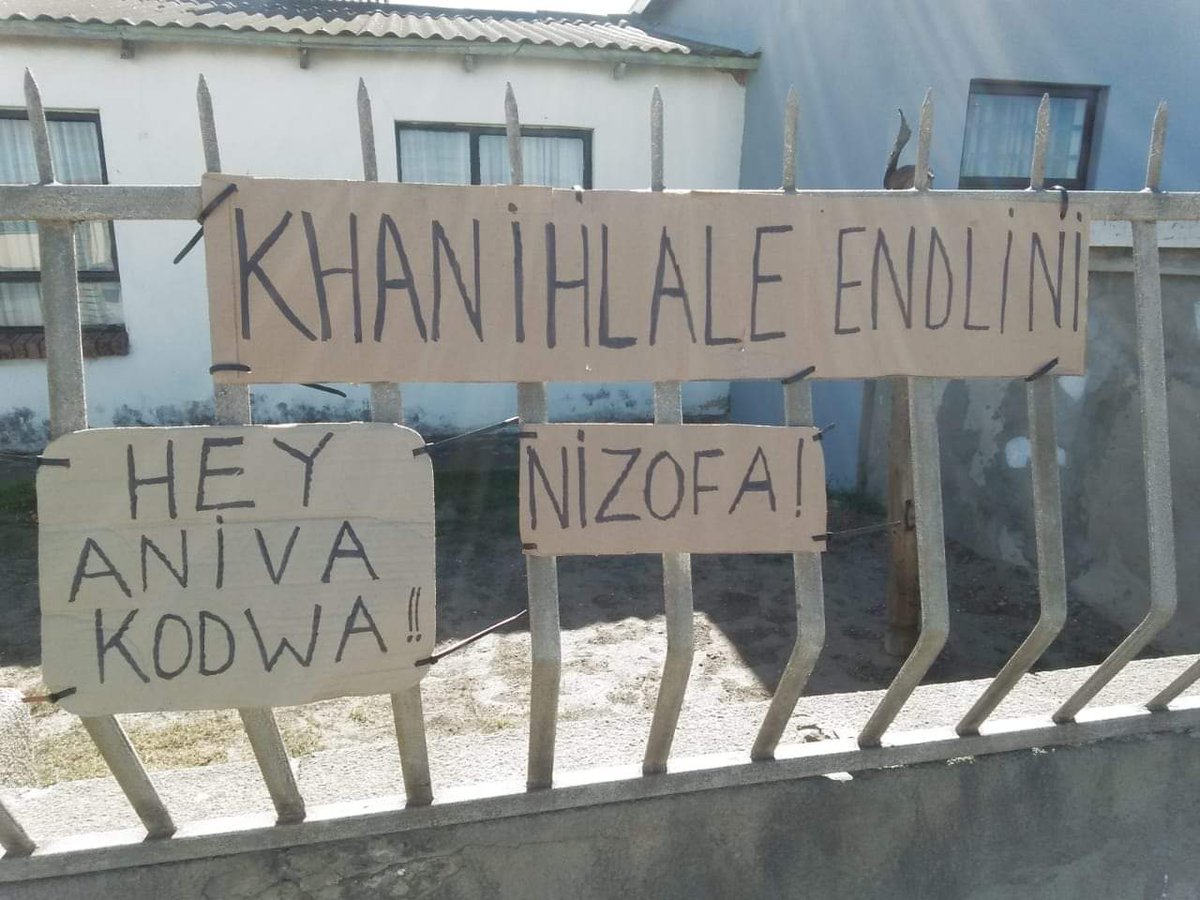 KHANIHLALE ENDLINI
HEY
ANIVA
KODWA!!
NIZOFA!